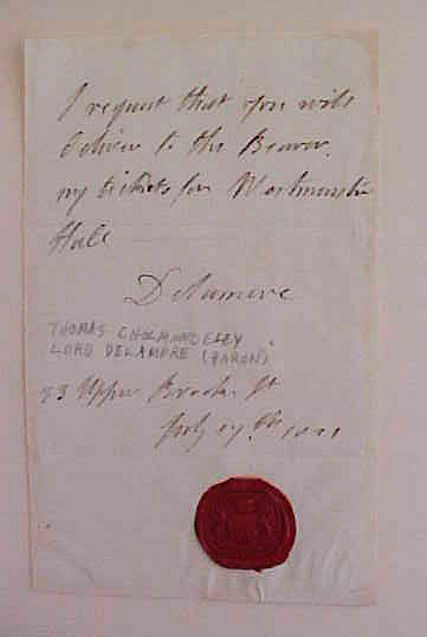 I request that you will
deliver to the Bearer,
my tickets for Westminster
Hall
Delamere
THOMAS CHOLMONDELEY
LORD DELAMERE (BARON)
Upper Brook St
July 17th 1821